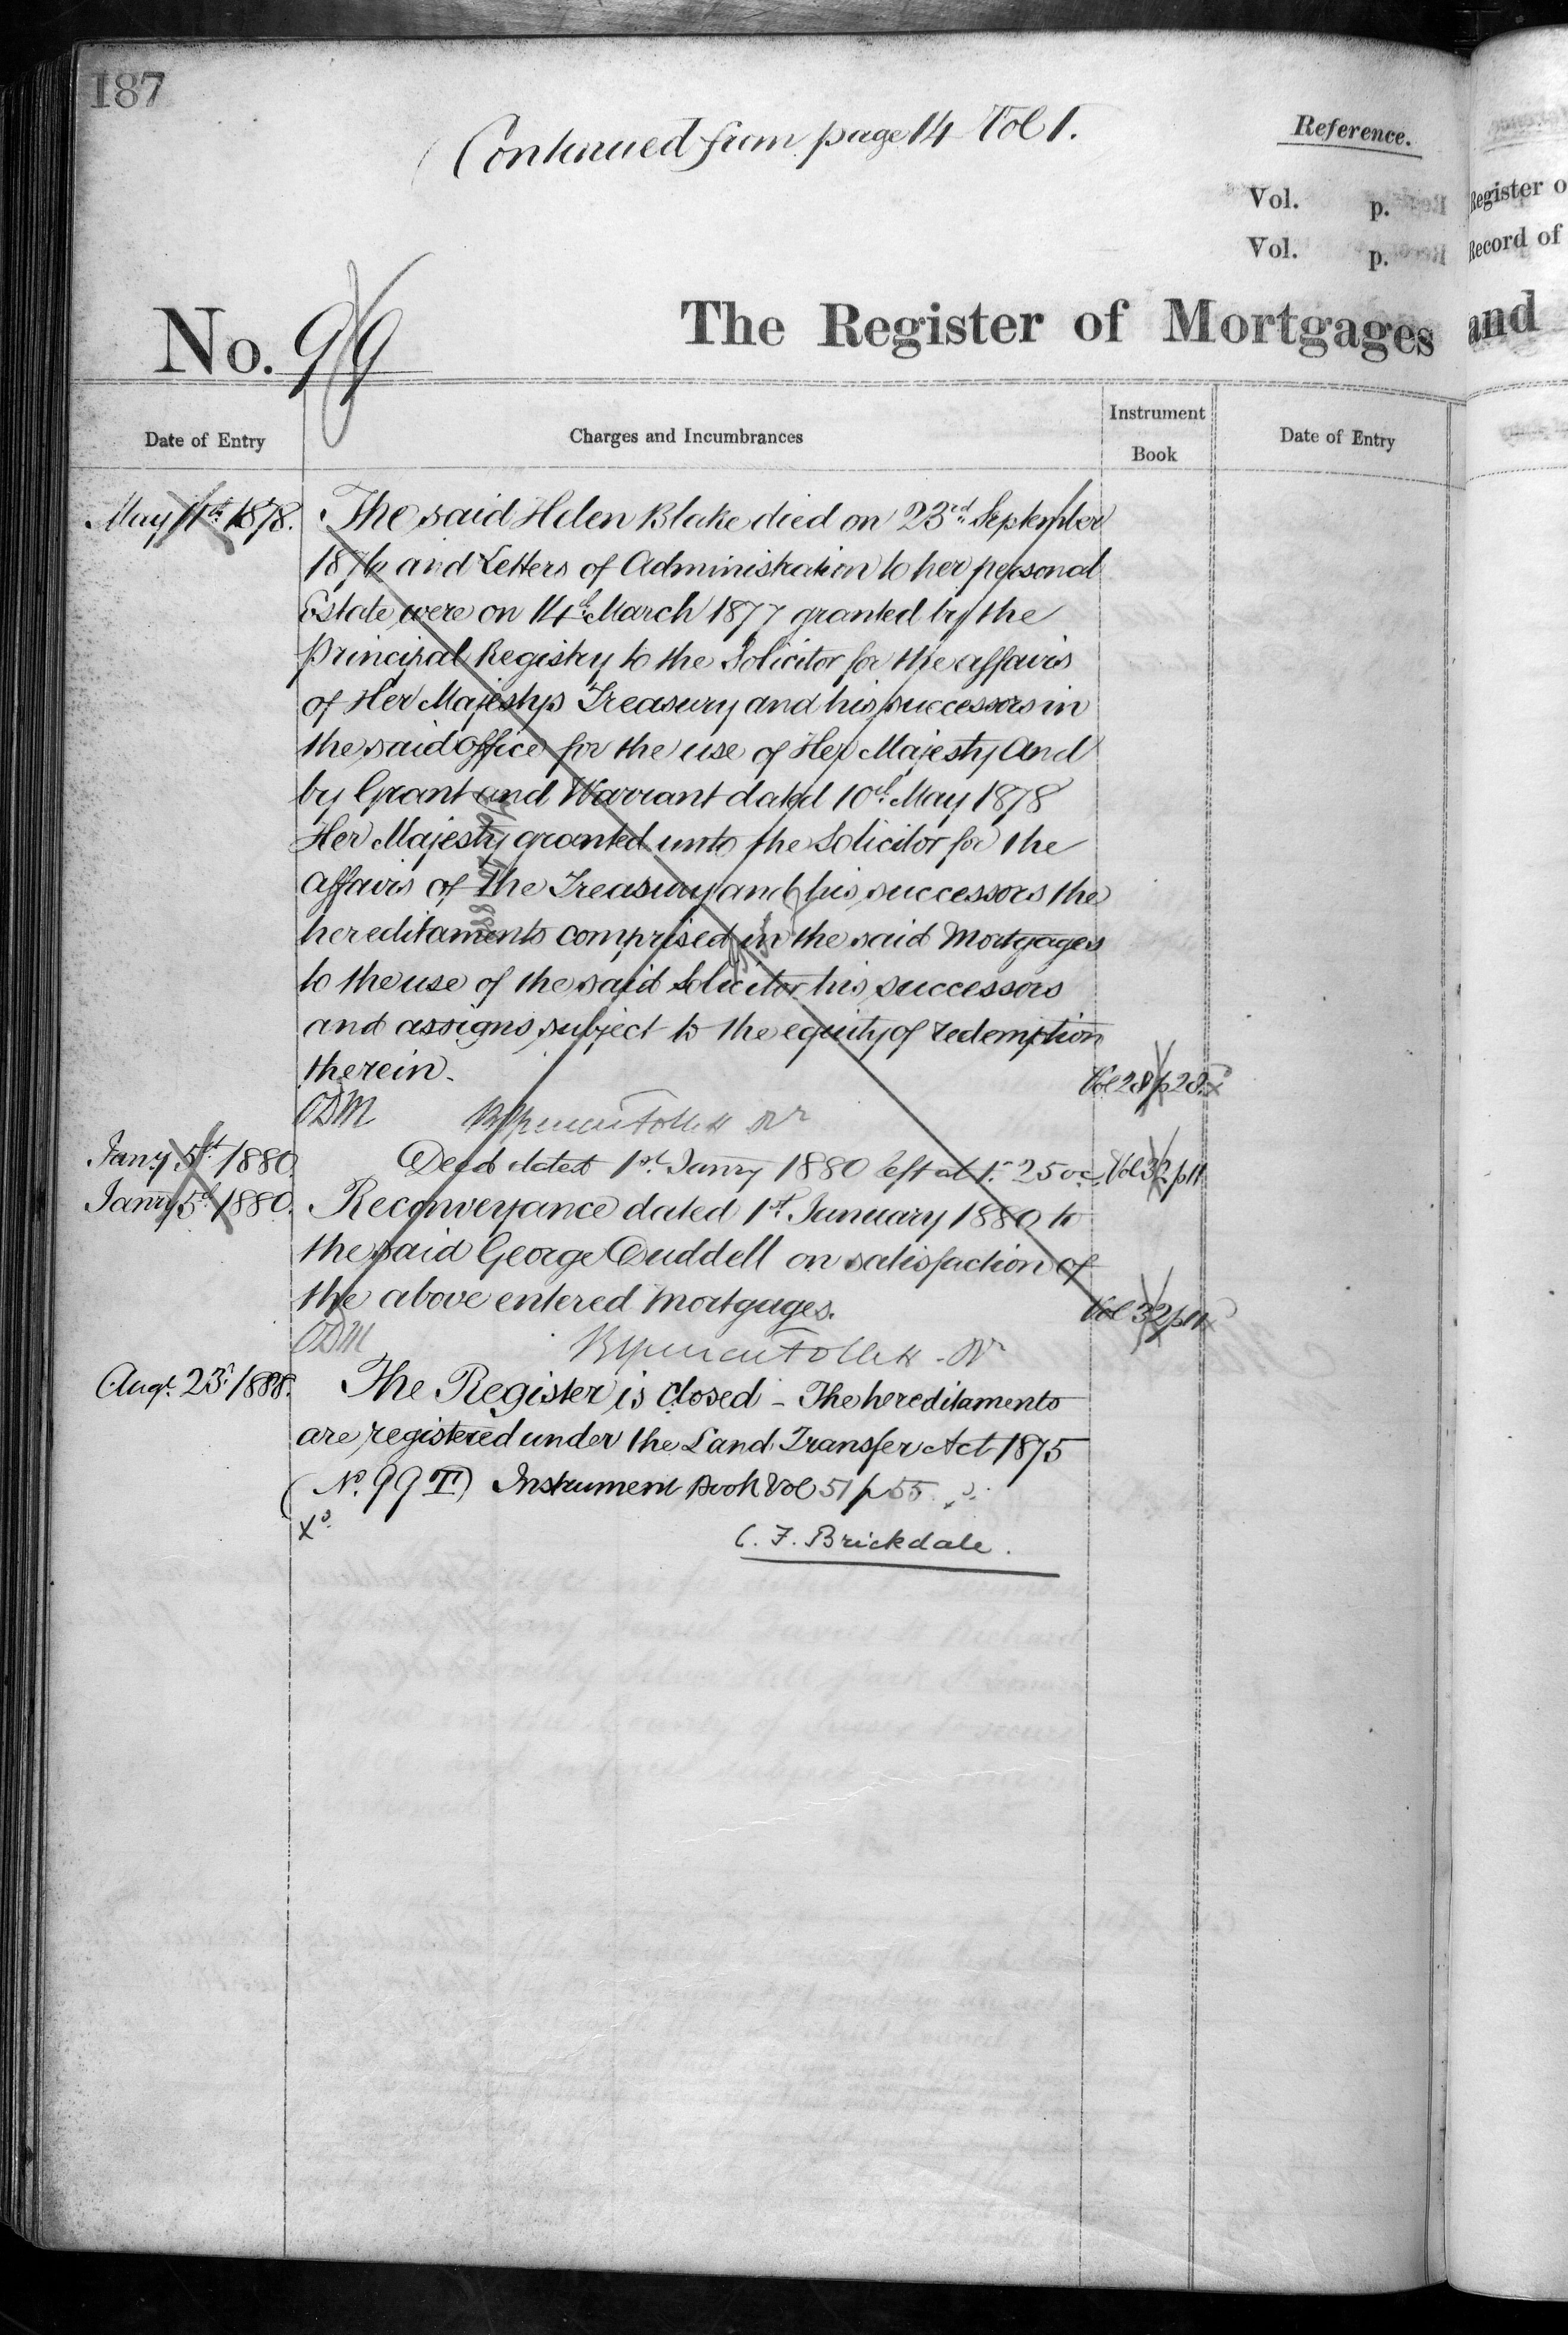 187
Continued from page 14 Vol 1.
Reference.
Vol. p.
Vol. p.
Register o
Record of
No. 99
The Register of Mortgages and
Date of Entry
Charges and Incumbrances
Instrument
Book
Date of Entry
May 11th 1878. The said Helen Blake died on 23rd September
1876 and Letters of Administration to her personal
Estate were on 14th March 1877 granted by the
Principal Registry to the Solicitor for the affairs
of Her Majestys Treasury and his successors in
the said Office for the use of Her Majesty And
by Grant and Warrant dated 10th May 1878
Her Majesty granted unto the Solicitor for the
affairs of the Treasury and his successors the
hereditaments comprised in the said Mortgages
to the use of the said Solicitor his successors
and assigns subject to the equity of redemption
therein. Vol 28 p 28
ODM
Jany 5th 1880. Deed dated 1st Janry 1880 left at 1.25 oc. Vol 32 p 11
Janry 5th 1880. Reconveyance dated 1st January 1880 to
the said George Duddell on satisfaction of
the above entered Mortgages. Vol 32 p 11
ODM
Augt 23rd 1888. The Register is Closed - The hereditaments
are registered under the Land Transfer Act 1875
(No. 99 T) Instrument Book Vol 51 p 55
C. F. Brickdale.